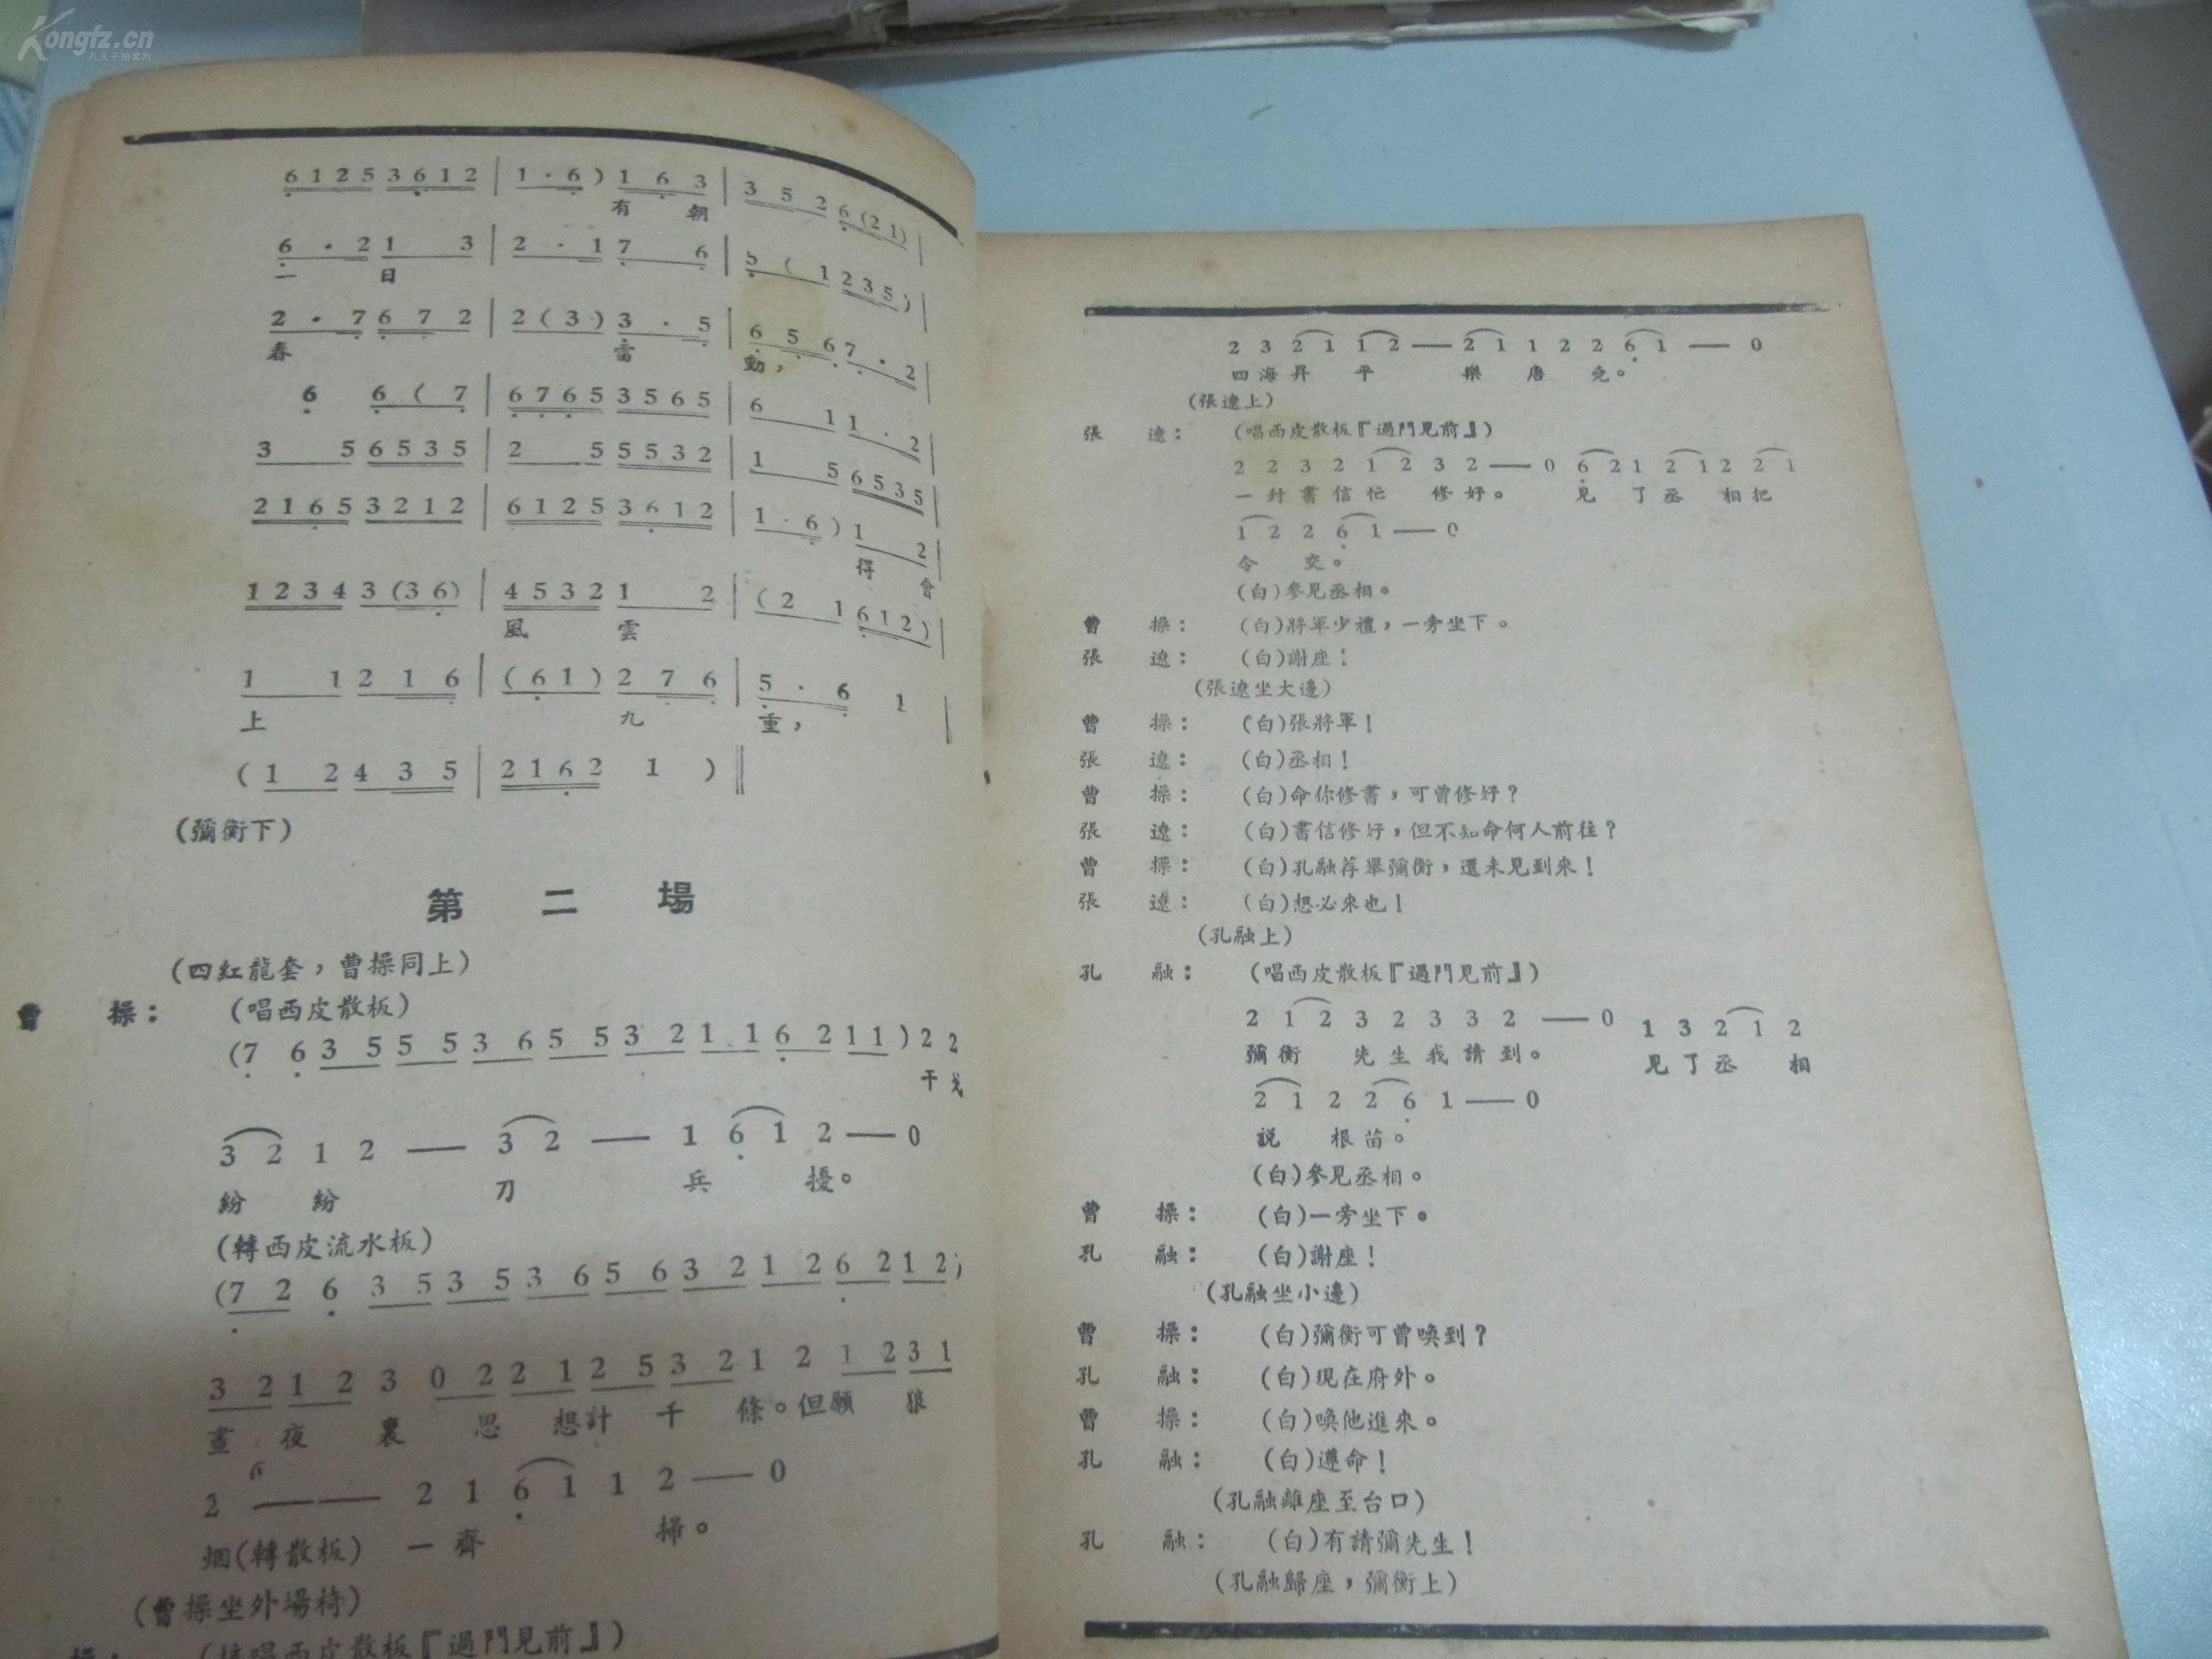 Kongfz.cn
孔夫子拍卖网
6 1 2 5 3 6 1 2 | 1 · 6 ) 1 6 3 | 3 5 2 6 ( 2 1 ) |
有 朝
6 · 2 1 3 | 2 · 1 7 6 | 5 ( 1 2 3 5 ) |
一 日
2 · 7 6 7 2 | 2 ( 3 ) 3 · 5 | 6 5 6 7 · 2 |
春 雷 動，
6 6 ( 7 | 6 7 6 5 3 5 6 5 | 6 1 1 · 2 |
3 5 6 5 3 5 | 2 5 5 5 3 2 | 1 5 6 5 3 5 |
2 1 6 5 3 2 1 2 | 6 1 2 5 3 6 1 2 | 1 · 6 ) 1 2 |
得 會
1 2 3 4 3 ( 3 6 ) | 4 5 3 2 1 2 | ( 2 1 6 1 2 ) |
風 雲
1 1 2 1 6 | ( 6 1 ) 2 7 6 | 5 · 6 1 |
上 九 重，
( 1 2 4 3 5 | 2 1 6 2 1 ) ‖
(彌衡下)
第 二 場
(四紅龍套，曹操同上)
曹 操： (唱西皮散板)
( 7 6 3 5 5 5 3 6 5 5 3 2 1 1 6 2 1 1 ) 2 2
干 戈
3 2 1 2 — 3 2 — 1 6 1 2 — 0
紛 紛 刀 兵 擾。
(轉西皮流水板)
( 7 2 6 3 5 3 5 3 6 5 6 3 2 1 2 6 2 1 2 )
3 2 1 2 3 0 2 2 1 2 5 3 2 1 2 1 2 3 1
晝 夜 裏 思 想計 千 條。但願 狼
2 6 — — 2 1 6 1 1 2 — 0
烟(轉散板) 一 齊 掃。
(曹操坐外場椅)
操： (接唱西皮散板『過門見前』)
2 3 2 1 1 2 — 2 1 1 2 2 6 1 — 0
四海昇 平 樂 唐 堯。
(張遼上)
張 遼： (唱西皮散板『過門見前』)
2 2 3 2 1 2 3 2 — 0 6 2 1 2 1 2 2 1
一封書信忙 修好。 見 了丞 相把
1 2 2 6 1 — 0
令 交。
(白)參見丞相。
曹 操： (白)將軍少禮，一旁坐下。
張 遼： (白)謝座！
(張遼坐大邊)
曹 操： (白)張將軍！
張 遼： (白)丞相！
曹 操： (白)命你修書，可曾修好？
張 遼： (白)書信修好，但不知命何人前往？
曹 操： (白)孔融荐舉彌衡，還未見到來！
張 遼： (白)想必來也！
(孔融上)
孔 融： (唱西皮散板『過門見前』)
2 1 2 3 2 3 3 2 — 0 1 3 2 1 2
彌衡 先生我請到。 見了丞 相
2 1 2 2 6 1 — 0
説 根苗。
(白)參見丞相。
曹 操： (白)一旁坐下。
孔 融： (白)謝座！
(孔融坐小邊)
曹 操： (白)彌衡可曾喚到？
孔 融： (白)現在府外。
曹 操： (白)喚他進來。
孔 融： (白)遵命！
(孔融離座至台口)
孔 融： (白)有請彌先生！
(孔融歸座，彌衡上)